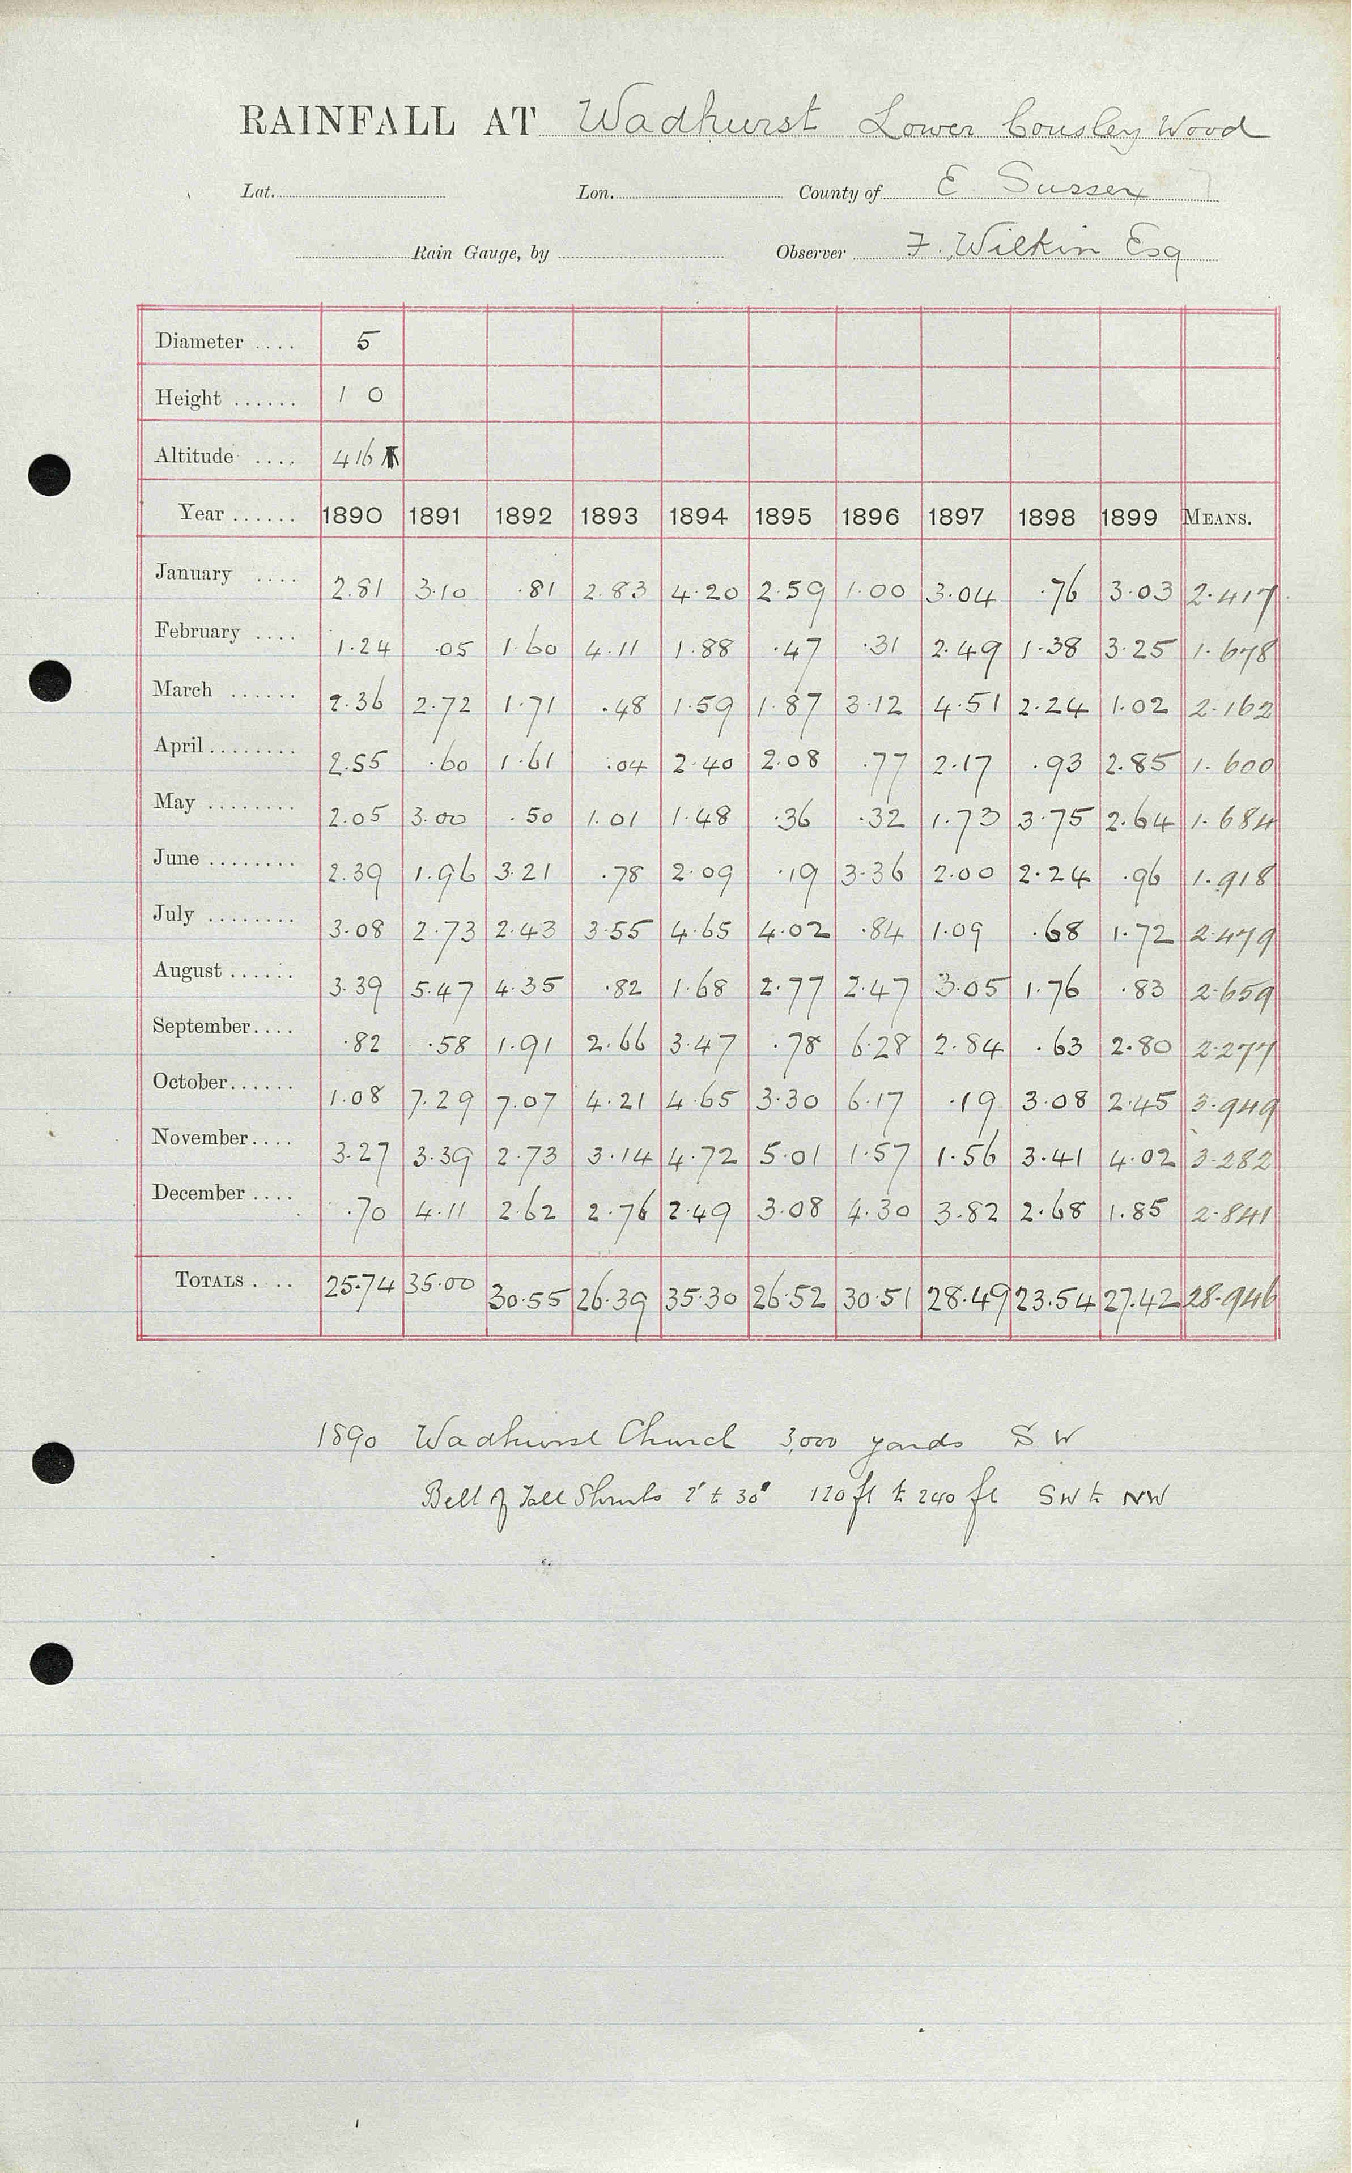 RAINFALL AT Wadhurst Lower Cousley Wood
Lat. Lon. County of E Sussex
Rain Gauge, by Observer F. Wilkin Esq
Diameter .... 5
Height ...... 1 0
Altitude .... 416
Year ...... 1890 1891 1892 1893 1894 1895 1896 1897 1898 1899 MEANS.
January .... 2.81 3.10 .81 2.83 4.20 2.59 1.00 3.04 .76 3.03 2.417
February .... 1.24 .05 1.60 4.11 1.88 .47 .31 2.49 1.38 3.25 1.678
March ...... 2.36 2.72 1.71 .48 1.59 1.87 3.12 4.51 2.24 1.02 2.162
April ........ 2.55 .60 1.61 .04 2.40 2.08 .77 2.17 .93 2.85 1.600
May ........ 2.05 3.00 .50 1.01 1.48 .36 .32 1.73 3.75 2.64 1.684
June ........ 2.39 1.96 3.21 .78 2.09 .19 3.36 2.00 2.24 .96 1.918
July ........ 3.08 2.73 2.43 3.55 4.65 4.02 .84 1.09 .68 1.72 2.479
August ...... 3.39 5.47 4.35 .82 1.68 2.77 2.47 3.05 1.76 .83 2.659
September.... .82 .58 1.91 2.66 3.47 .78 6.28 2.84 .63 2.80 2.277
October...... 1.08 7.29 7.07 4.21 4.65 3.30 6.17 .19 3.08 2.45 3.949
November.... 3.27 3.39 2.73 3.14 4.72 5.01 1.57 1.56 3.41 4.02 3.282
December .... .70 4.11 2.62 2.76 2.49 3.08 4.30 3.82 2.68 1.85 2.841
TOTALS .... 25.74 35.00 30.55 26.39 35.30 26.52 30.51 28.49 23.54 27.42 28.946
1890 Wadhurst Church 3,000 yards S W
Belt of Tall Shrubs 2' to 30' 120 ft to 240 ft SW to NW